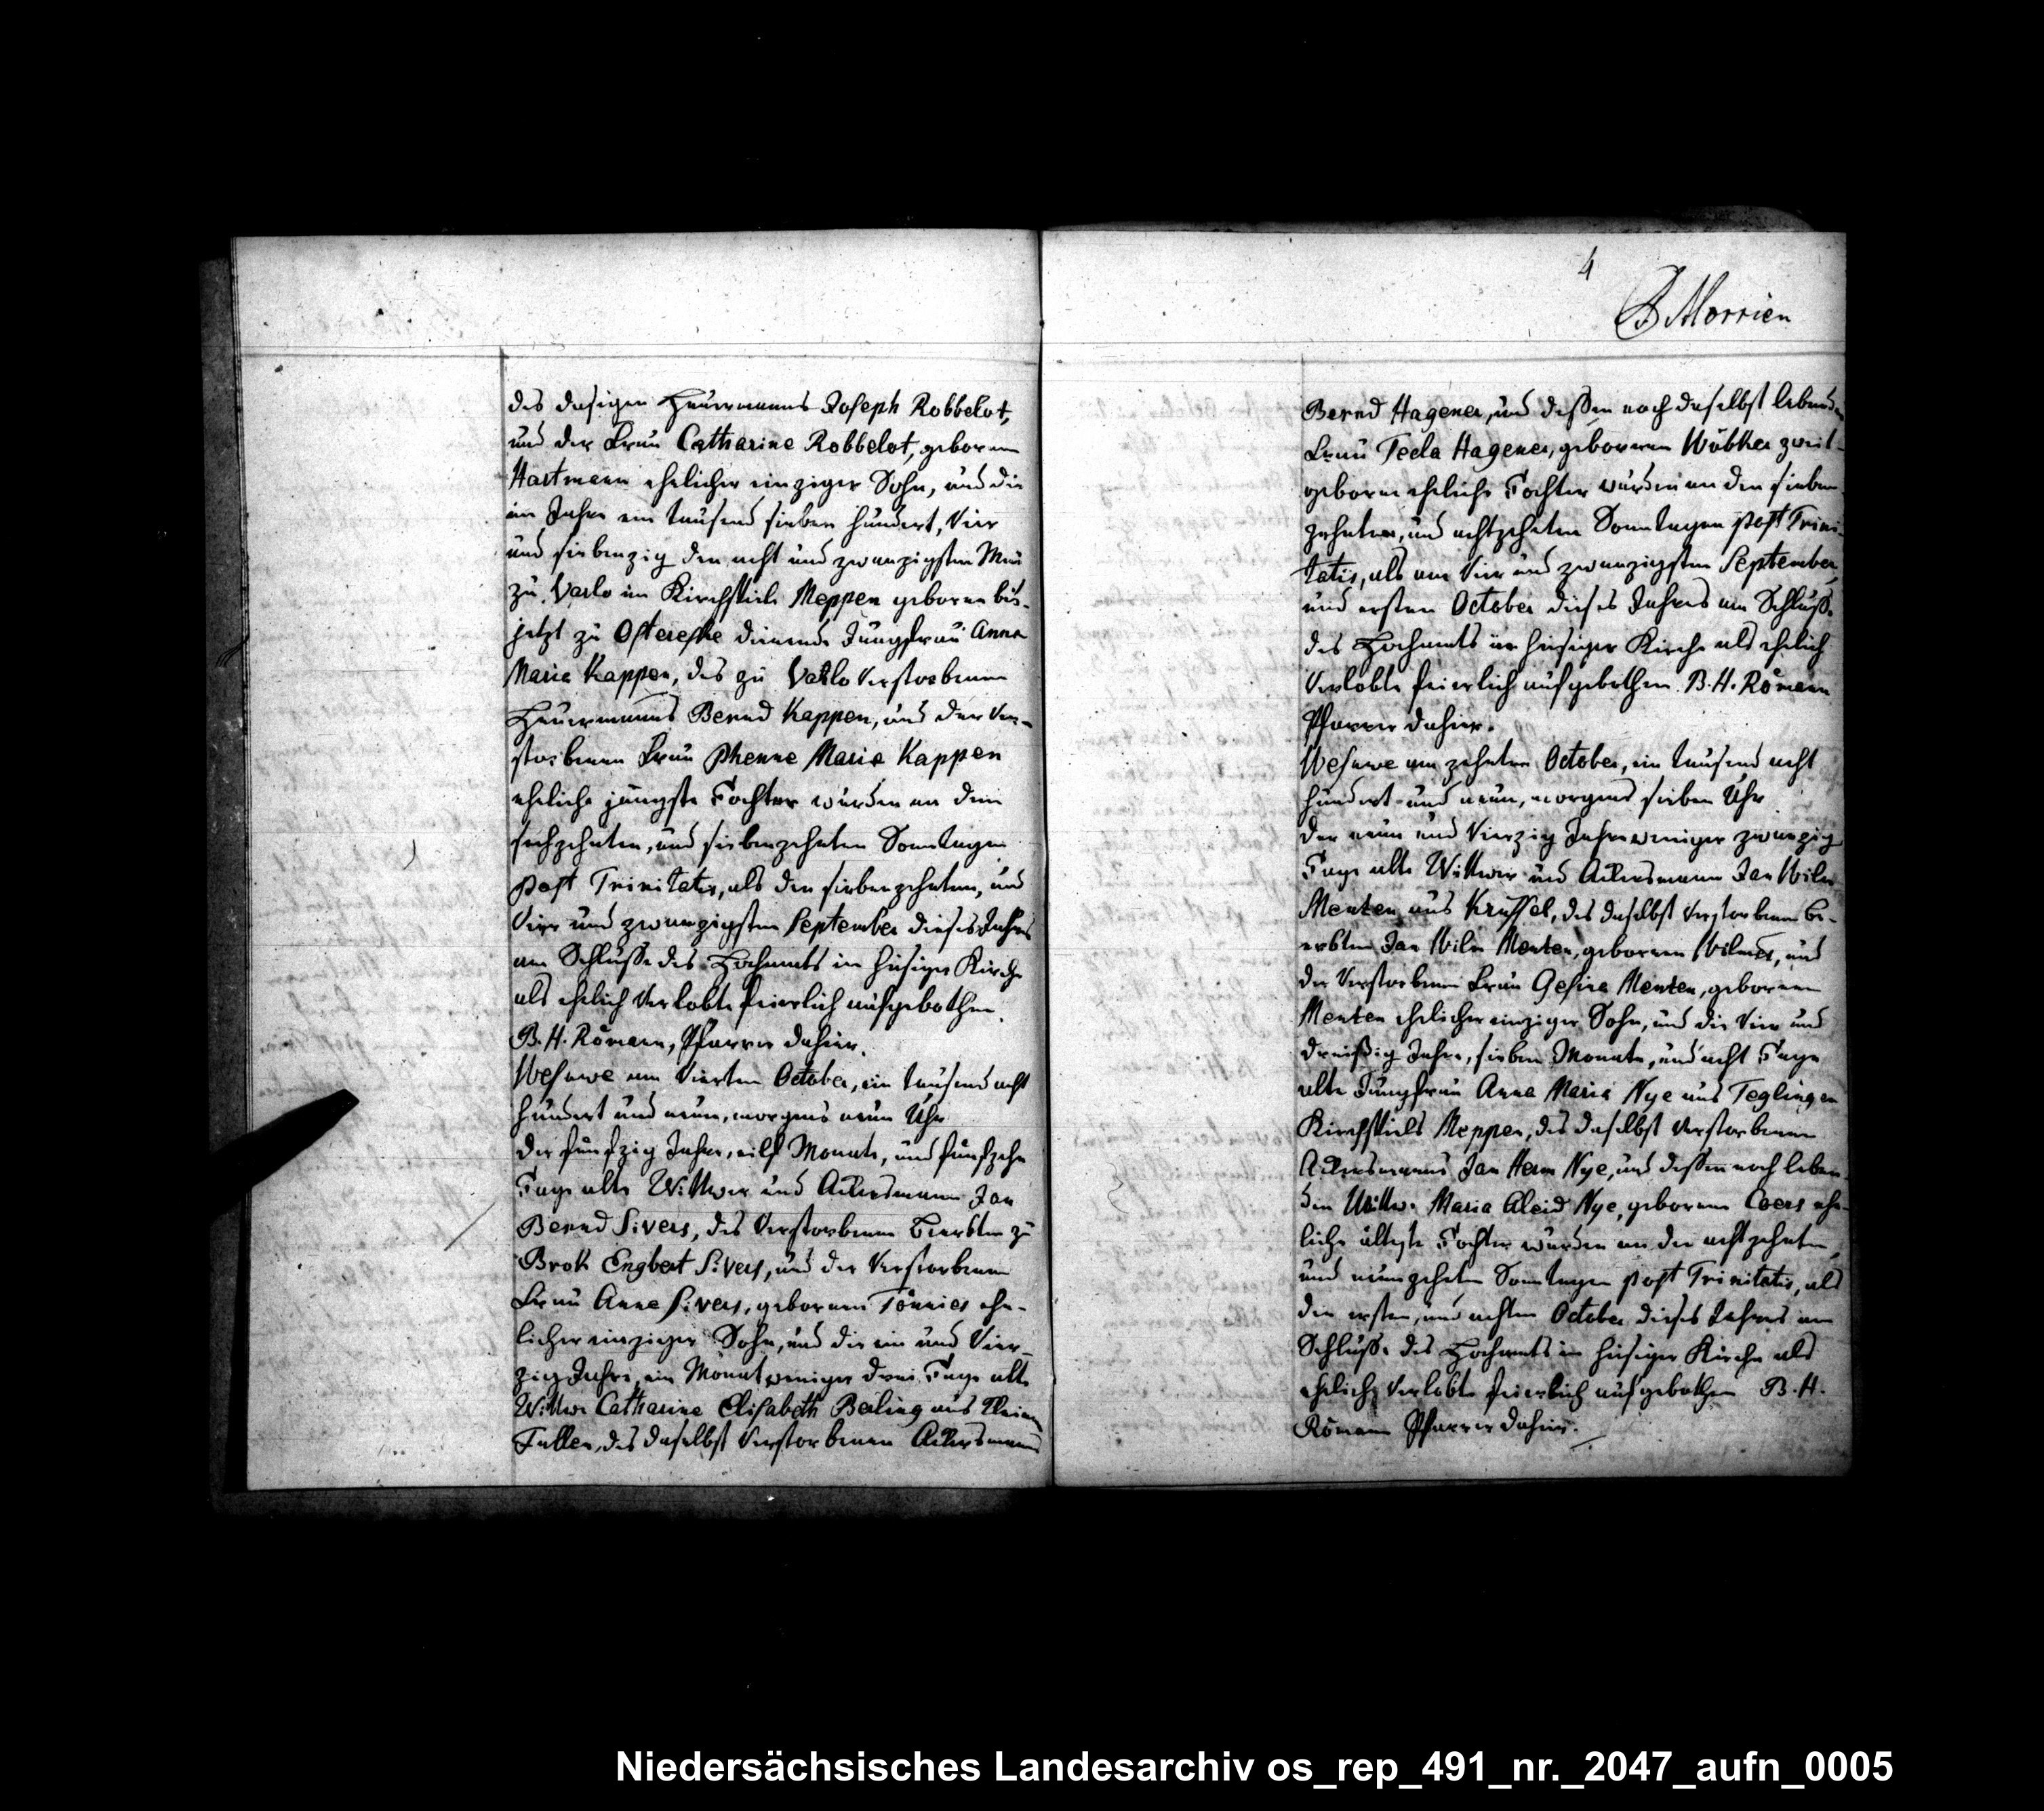 des dasigen Heuermanns Joseph Robbelot,
und der Frau Catharine Robbelot, gebornen
Hartmann ehelicher einziger Sohn, und die
im Jahre ein tausend sieben hundert, Vier
und siebenzig den acht und zwanzigsten Mai
zu Varlo im Kirchspiele Meppen geborne bis-
jetzt zu dienende Jungfrau Anna
Maria Kappen, des zu Varlo Verstorbenen
Heuermanns Bernd Kappen, und der Ver-
storbenen Frau Phenne Maria Kappen
eheliche jüngste Tochter wurden an dem
sechzehnten, und siebenzehnten Sonntagen
post Trinitatis, als den siebenzehnten, und
Vier und zwanzigsten September dieses Jahres
am Schlusse des Hochamts in hiesiger Kirche
als ehelich Verlobte feierlich aufgebothen.
B. H. Römann, Pfarrer dahier.
Wesuwe am Vierten October, ein tausend acht
hundert und neun, morgens neun Uhr
Der fünfzig Jahre, eilf Monate, und fünfzehn
Tage alte Wittwer und Ackersmann Jan
Bernd Sivers, des Verstorbenen Beerbten zu
Brok Engbert Sivers, und der Verstorbenen
Frau Anne Sivers, gebornen Tönnies ehe-
licher einziger Sohn, und die ein und Vier-
zig Jahre, ein Monat weniger drei Tage alte
Wittwe Catharine Elisabeth Berling aus Kleine
Fullen, des daselbst Verstorbenen Ackersmanns
4
B Morrien
Bernd Hagener, und dessen noch daselbst lebenden
Frau Tecla Hagener, gebornen Wöbker zweit-
geborne eheliche Tochter wurden an den sieben-
zehnten, und achtzehnten Sonntagen post Trini-
tatis, als am Vier und zwanzigsten September,
und ersten October dieses Jahres am Schlusse
des Hochamts in hiesiger Kirche als ehelich
Verlobte feierlich aufgebothen. B. H. Römann
Pfarrer dahier.
Wesuwe am zehnten October, ein tausend acht
hundert und neun, morgens sieben Uhr
Der neun und Vierzig Jahre weniger zwanzig
Tage alte Wittwer und Ackersmann Jan Wilm
Menten aus Krüssel, des daselbst Verstorbenen Be-
erbten Jan Wilm Menten, gebornen Wilmes, und
der Verstorbenen Frau Gesina Menten, gebornen
Menten ehelicher einziger Sohn, und die Vier und
dreißig Jahre, sieben Monate, und acht Tage
alte Jungfrau Anna Maria Nye aus Teglingen
Kirchspiels Meppen, des daselbst Verstorbenen
Ackersmanns Jan Herm Nye, und dessen noch leben-
den Wittwe Maria Aleid Nye, gebornen Coers ehe-
liche älteste Tochter wurden an den achtzehnten,
und neunzehnten Sonntagen post Trinitatis, als
den ersten, und achten October dieses Jahres am
Schlusse des Hochamts in hiesiger Kirche als
ehelich Verlobte feierlich aufgebothen B. H.
Römann Pfarrer dahier.
Niedersächsisches Landesarchiv os_rep_491_nr._2047_aufn_0005